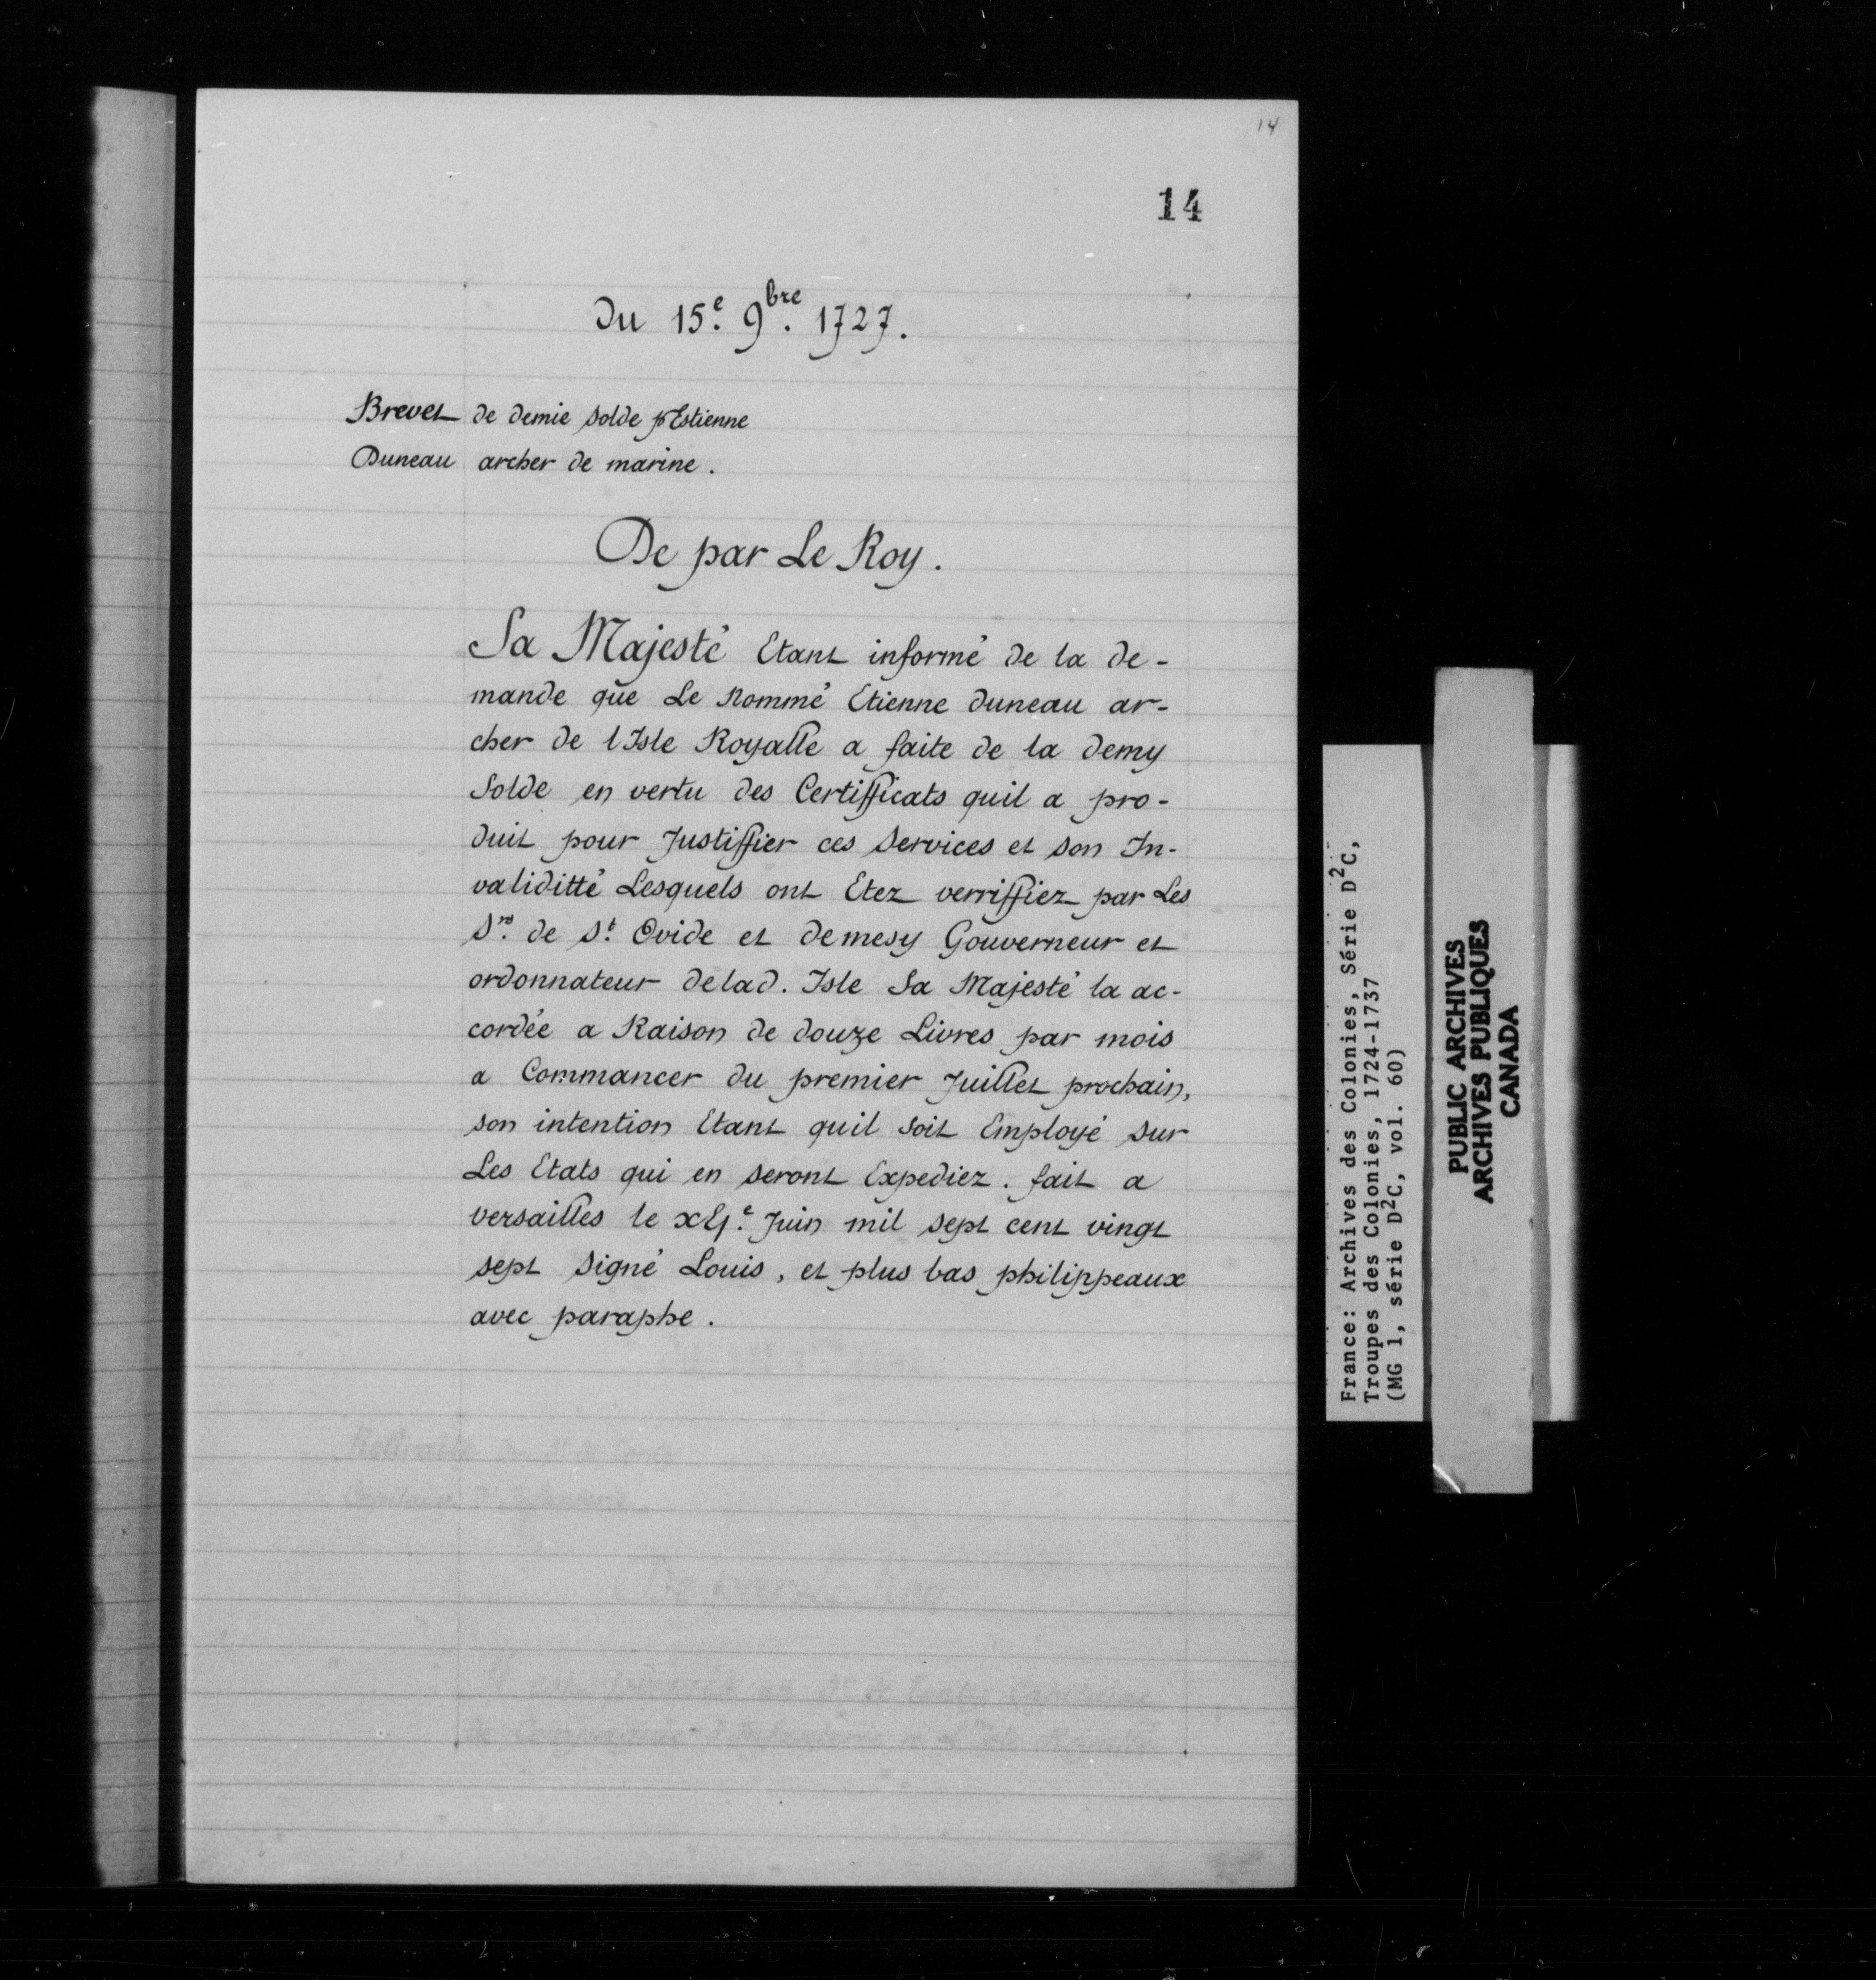 14
14
Du 15e. 9bre. 1727.
Brevet de demie solde pr Estienne
Duneau archer de marine.
De par Le Roy.
Sa Majesté Etant informé de la de-
mande que Le Nommé Etienne Duneau ar-
cher de l'Isle Royalle a faite de la demy
Solde en vertu des Certifficats quil a pro-
duit pour Justiffier ces Services et son In-
validitté Lesquels ont Etez verriffiez par Les
Srs. de St. Ovide et demesy Gouverneur et
ordonnateur delad. Isle Sa Majesté la ac-
cordée a Raison de douze Livres par mois
a Commancer du premier Juillet prochain,
son intention Etant quil soit Employé sur
Les Etats qui en seront Expediez. fait a
versailles le Juin mil sept cent vingt
sept Signé Louis, et plus bas philippeaux
avec paraphe.
France: Archives des Colonies, Série D²C,
Troupes des Colonies, 1724-1737
(MG 1, série D²C, vol. 60)
PUBLIC ARCHIVES
ARCHIVES PUBLIQUES
CANADA